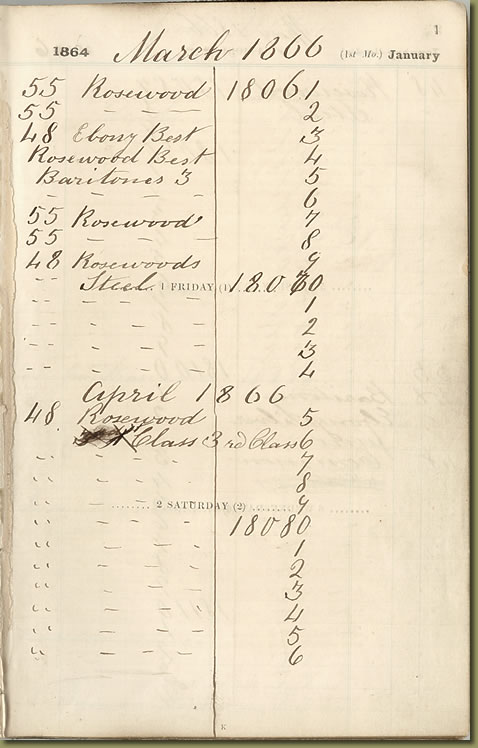 1
1864 March 1866 (1st Mo.) January
55 Rosewood 18061
55 — — — 2
48 Ebony Best 3
Rosewood Best 4
Baritones 3 5
— — — 6
55 Rosewood 7
55 — — — 8
48 Rosewoods 9
Steel 1 FRIDAY (1) 18070
" — — — 1
" — — — 2
" — — — 3
" — — — 4
April 1866
48 Rosewood 5
Class 3rd Class 6
" — — — 7
" — — — 8
" — — — 9
2 SATURDAY (2)
" — — — 18080
" — — — 1
" — — — 2
" — — — 3
" — — — 4
" — — — 5
" — — — 6
K